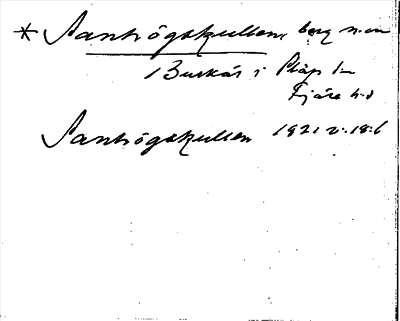 * Santhögskullen, berg n.om
Buskås i Släp sn
Fjäre hd
Santhögskullen 1921 v. 18:6